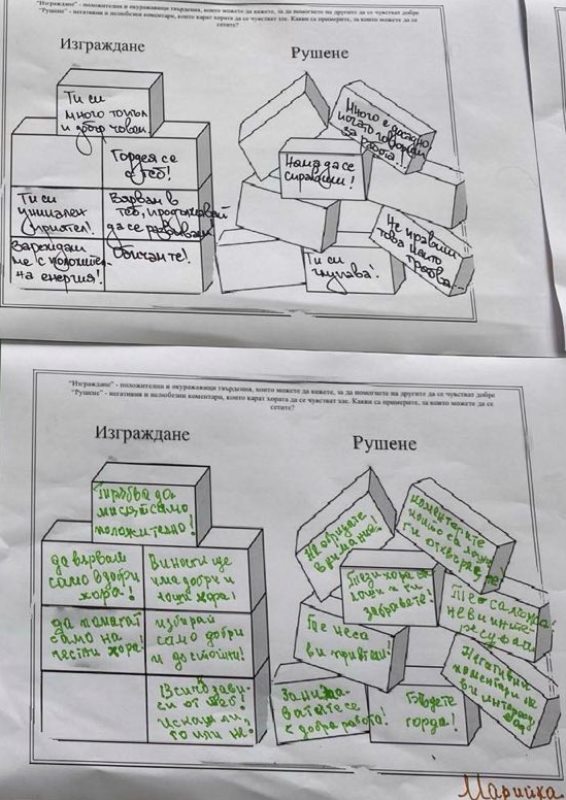 "Изграждане" - положителни и окуражаващи твърдения, които можете да кажете, за да помогнете на другите да се чувстват добре
"Рушене" - негативни и нелюбезни коментари, които карат хората да се чувстват зле. Какви са примерите, за които можете да се
сетите?
Изграждане
Ти си
много топъл
и добър човек
Гордея се
с теб!
Ти си
уникален
приятел!
Вярвам в
теб, продължавай
да се развиваш
Зареждаш
ме с положител-
на енергия!
Обичам те!
Рушене
Много е досадно
когато говориш
за работа...
Няма да се
справиш!
Не правиш
това което
трябва...
Ти си
глупава!
"Изграждане" - положителни и окуражаващи твърдения, които можете да кажете, за да помогнете на другите да се чувстват добре
"Рушене" - негативни и нелюбезни коментари, които карат хората да се чувстват зле. Какви са примерите, за които можете да се
сетите?
Изграждане
Трябва да
мислят само
положително!
да вярвам
само в добри
хора!
Винаги ще
има добри и
лоши хора!
да помагат
само на
чести хора!
избирай
само добри
и достойни!
Всичко зави-
си от теб!
Искаш ли,
то или не.
Рушене
Не обръщайте
внимание
коментарите
колко са лоши
ги отварят
Тези хора са
лоши и ги
забравете!
Те са лоша
не ви инте-
ресуват
Те не са
ви приятели!
Негативни
коментари не
ви интересуват
Занима-
вайте се
с добра работа!
Бъдете
горда!
Марийка